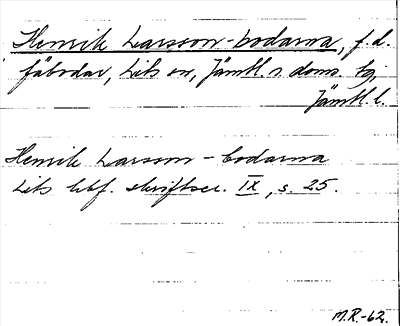 Henrik Larsson-bodarna, f.d.
fäbodar, Lits sn, Jämtl. n. doms. tg,
Jämtl. l.
Henrik Larsson-bodarna
Lits hbf. skriftser. IX, s. 25.
M.R.-62.